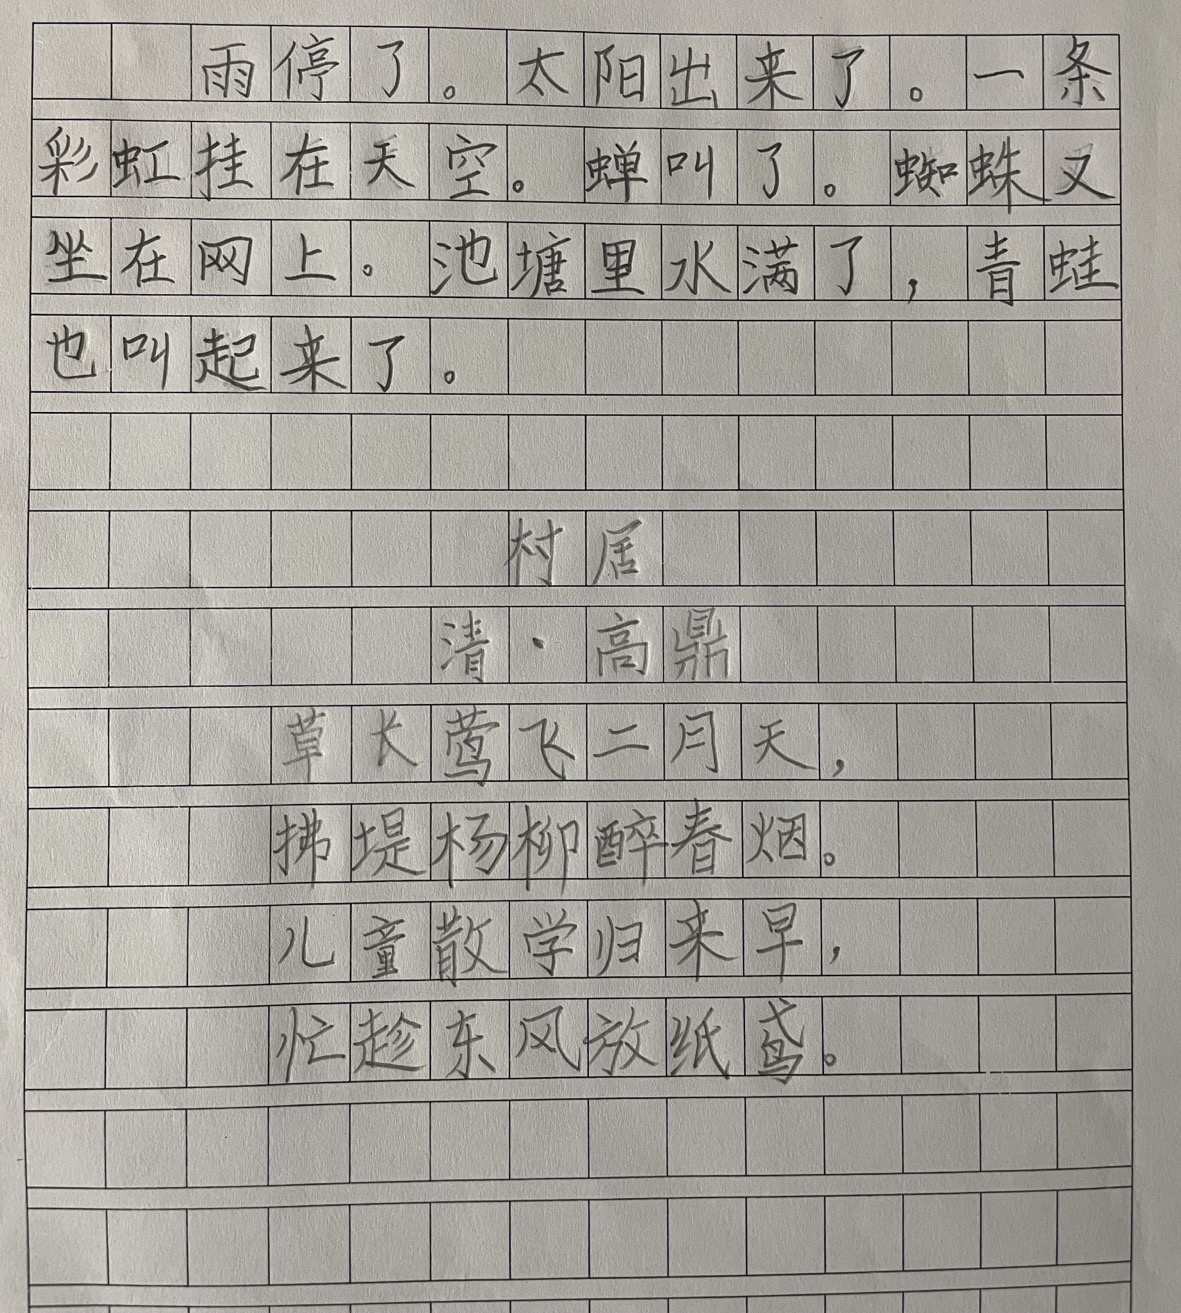 雨停了。太阳出来了。一条
彩虹挂在天空。蝉叫了。蜘蛛又
坐在网上。池塘里水满了，青蛙
也叫起来了。
村居
清·高鼎
草长莺飞二月天，
拂堤杨柳醉春烟。
儿童散学归来早，
忙趁东风放纸鸢。